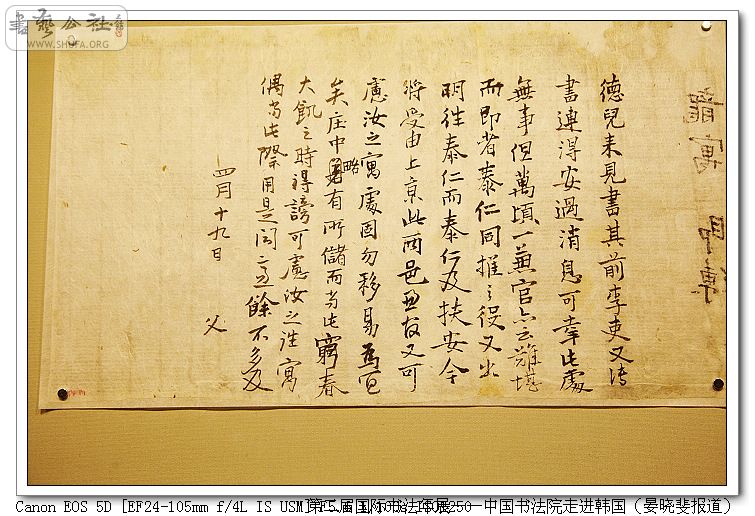 書藝公社
WWW.SHUFA.ORG
德兒來見書其前李吏又傳
書連得安過消息可幸此處
無事但萬頃一兼官亦云難堪
而即者泰仁同推之役又出
明往泰仁而泰仁及扶安令
將受由上京此兩邑又可
慮汝之寓處因勿移易爲宜
矣庄中略有所儲而當此窮春
大飢之時得謗可慮汝之往寓
偶當此際用是悶餘不多及
四月十九日
父
Canon EOS 5D [EF24-105mm f/4L IS USM] 国际书法年展 中国书法院走进韩国（晏晓斐报道）